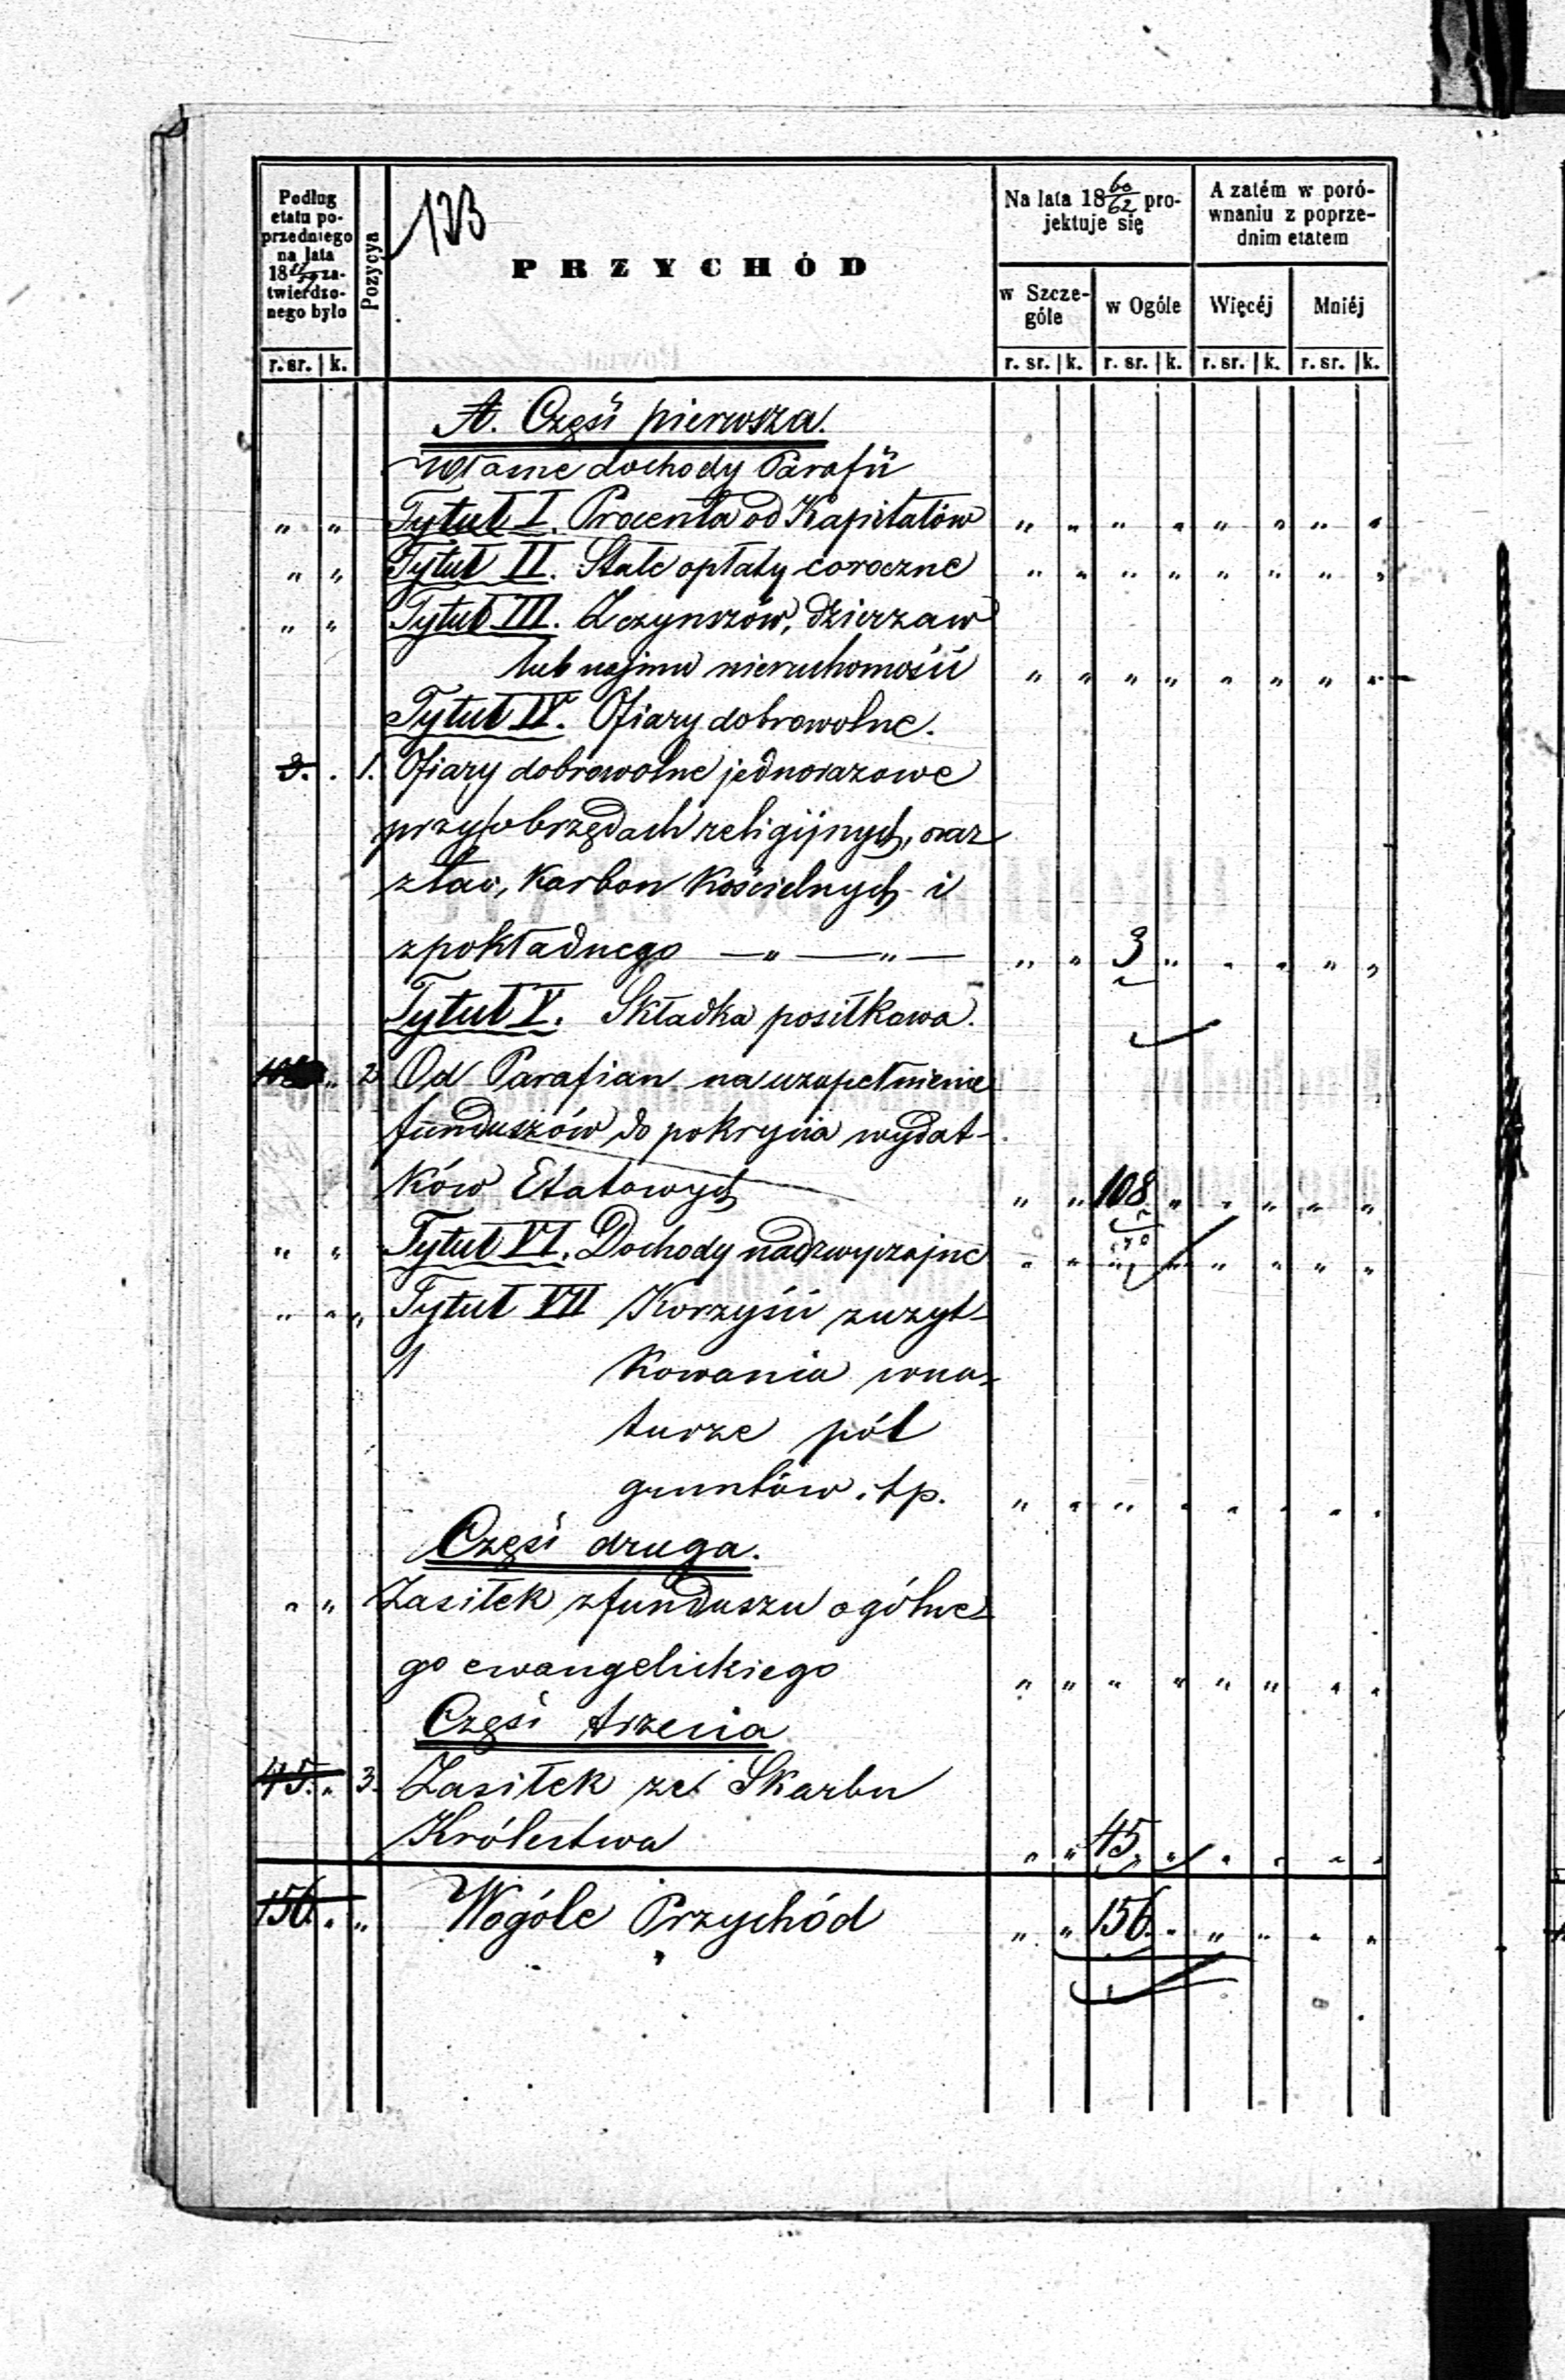 Podług
etatu po-
przedniego
na lata
18 za-
twierdzo-
nego było
r. sr. k.
Pozycya
173
PRZYCHÓD
Na lata 18 60/62 pro-
jektuje się
w Szcze-
góle
w Ogóle
r. sr. k. r. sr. k.
A zatém w poró-
wnaniu z poprze-
dnim etatem
Więcéj Mniéj
r. sr. k. r. sr. k.
A. Częśi pierwsza.
Własne dochody Parafii
" " Tytuł I. Procenta od Kapitałów " " " " " " " "
" " Tytuł II. Stałe opłaty coroczne " " " " " " " "
" " Tytuł III. Z czynszów, dzierzaw
lub najmu nieruchomości " " " " " " " "
Tytuł IV. Ofiary dobrowolne.
3. . 1. Ofiary dobrowolne jednorazowe
przy obrzędach religijnych, oraz
z tac, Karbon Kościelnych i
z pokładnego — " — " — " " 3 " " " " "
Tytuł V. Składka posiłkowa.
" 2 Od Parafian na uzupełnienie
funduszów do pokrycia wydat-
ków Etatowych " " 108 " " " " "
" " Tytuł VI. Dochody nadzwyczajne " " " " " " " "
" " " Tytuł VII Korzyści z uzyt-
kowania w na-
turze pól
gruntów i t p. " " " " " " " "
Częśi druga.
" " Zasiłek z funduszu ogólne-
go ewangelickiego " " " " " " " "
Częśi trzecia
45. " 3. Zasiłek ze Skarbu
Królestwa " " 45. " " " " "
156. " " Wogóle Przychód " " 156. " " " " "